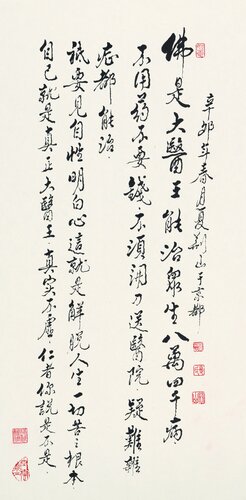 辛卯年春月夏荆山于京都
佛是大醫王能治衆生八萬四千病
不用药不要錢不須開刀送醫院疑難雜
症都能治
祗要見自性明白心這就是解脫人生一切苦之根本
自己就是真正大醫王真实不虚仁者你說是不是